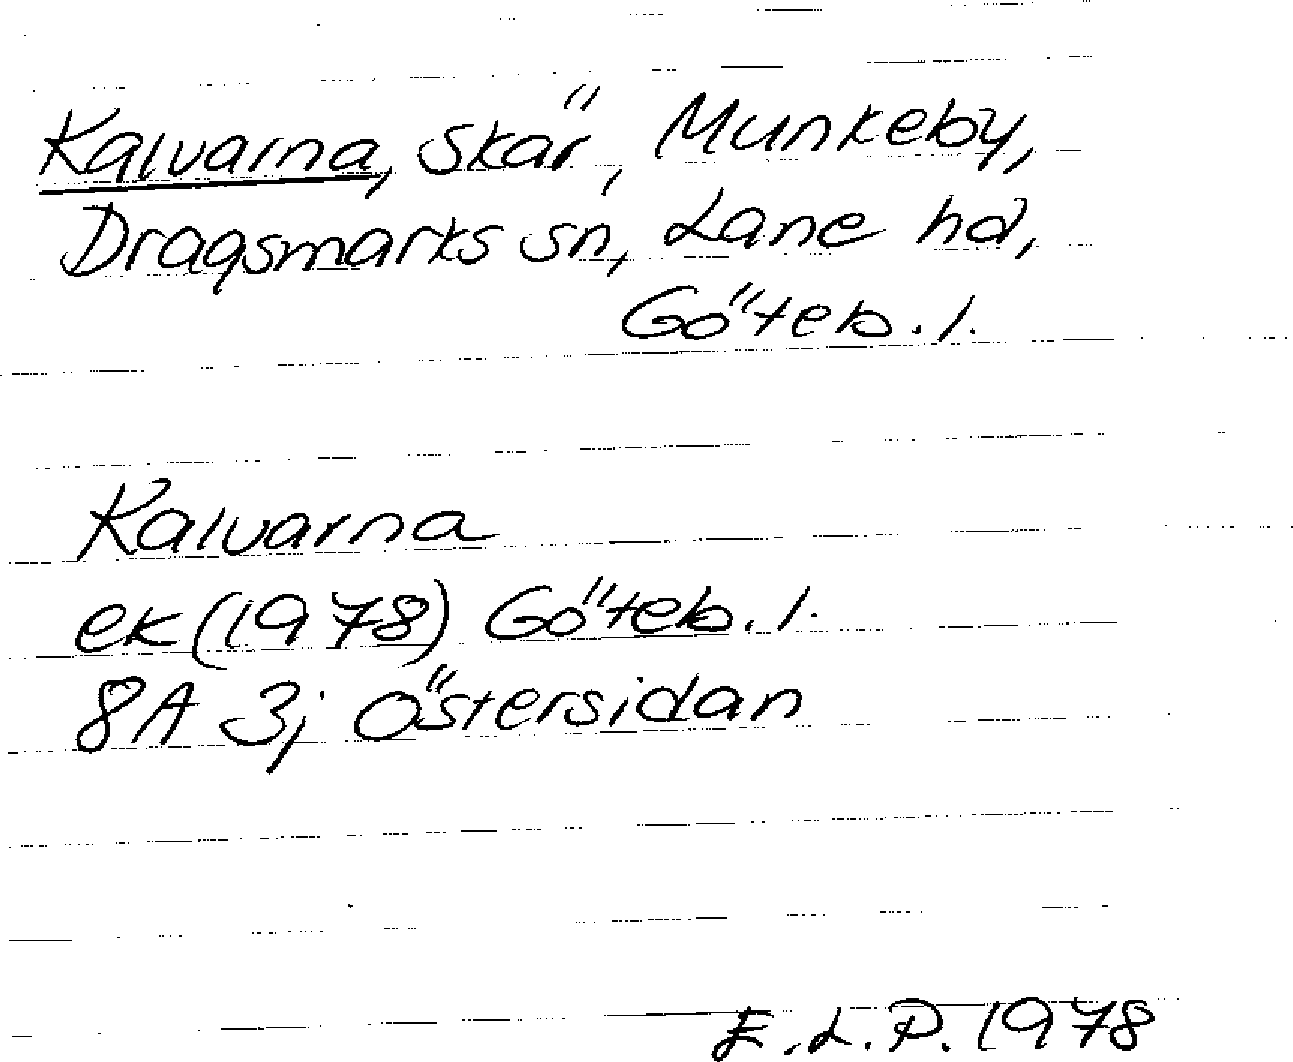 Kalvarna, skär, Munkeby,
Dragsmarks sn, Lane hd,
Göteb. l.
Kalvarna
ek (1978) Göteb. l.
8A 3j Östersidan
E.L.P. 1978